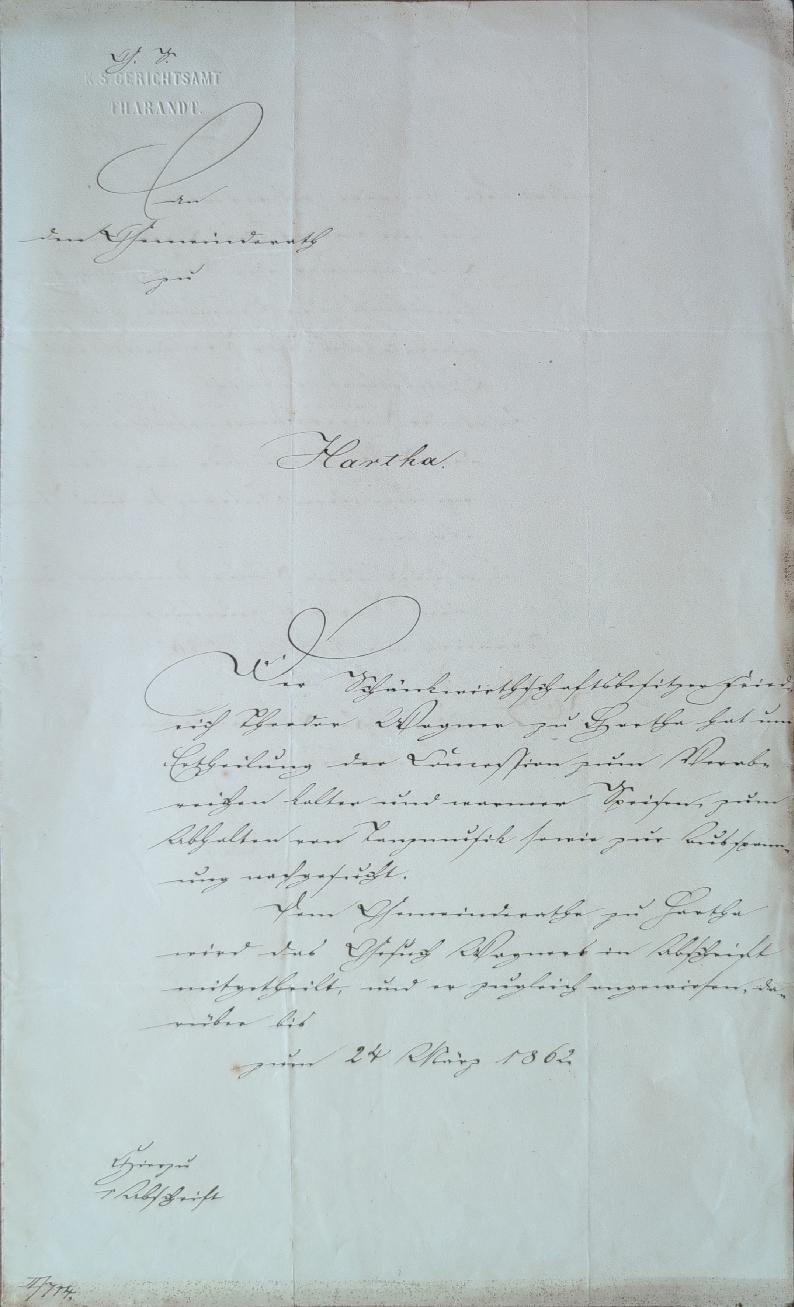 K. S. GERICHTSAMT
THARANDT.
An
den Gemeinderath
zu
Hartha.
Der Schänkwirthschaftsbesitzer Fried-
rich Theodor Wagner zu Hartha hat um
Ertheilung der Concession zum Verab-
reichen kalter und warmer Speisen, zum
Abhalten von Tanzmusik sowie zur Ausspann-
ung nachgesucht.
Dem Gemeinderathe zu Hartha
wird das Gesuch Wagners in Abschrift
mitgetheilt, und er zugleich angewiesen, da-
rüber bis
zum 24 März 1862
Hierzu
1 Abschrift
II/714.